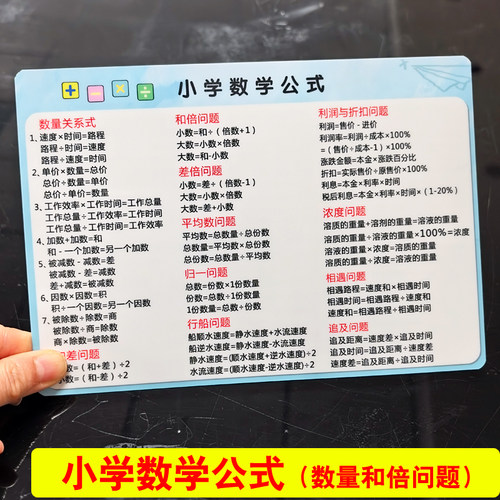 小学数学公式
数量关系式
1. 速度×时间=路程
路程÷时间=速度
路程÷速度=时间
2. 单价×数量=总价
总价÷数量=单价
总价÷单价=数量
3. 工作效率×工作时间=工作总量
工作总量÷工作效率=工作时间
工作总量÷工作时间=工作效率
4. 加数+加数=和
和-一个加数=另一个加数
5. 被减数-减数=差
被减数-差=减数
差+减数=被减数
6. 因数×因数=积
积÷一个因数=另一个因数
7. 被除数÷除数=商
被除数÷商=除数
商×除数=被除数
差问题
=(和+差)÷2
小数=(和-差)÷2
和倍问题
小数=和÷(倍数+1)
大数=小数×倍数
大数=和-小数
差倍问题
小数=差÷(倍数-1)
大数=小数×倍数
大数=差+小数
平均数问题
平均数=总数量÷总份数
总数量=平均数×总份数
总份数=总数量÷平均数
归一问题
总数=份数×1份数量
份数=总数÷1份数量
1份数量=总数÷份数
行船问题
船顺水速度=静水速度+水流速度
船逆水速度=静水速度-水流速度
静水速度=(顺水速度+逆水速度)÷2
水流速度=(顺水速度-逆水速度)÷2
利润与折扣问题
利润=售价-进价
利润率=利润÷成本×100%
=(售价÷成本-1)×100%
涨跌金额=本金×涨跌百分比
折扣=实际售价÷原售价×100%
利息=本金×利率×时间
税后利息=本金×利率×时间×(1-20%)
浓度问题
溶质的重量+溶剂的重量=溶液的重量
溶质的重量÷溶液的重量×100%=浓度
溶液的重量×浓度=溶质的重量
溶质的重量÷浓度=溶液的重量
相遇问题
相遇路程=速度和×相遇时间
相遇时间=相遇路程÷速度和
速度和=相遇路程÷相遇时间
追及问题
追及距离=速度差×追及时间
追及时间=追及距离÷速度差
速度差=追及距离÷追及时间
小学数学公式(数量和倍问题)